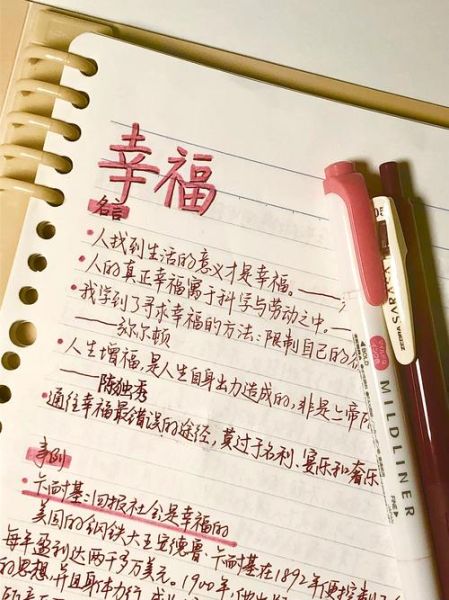 幸福
名言
•人找到生活的意义才是幸福。——
•人的真正幸福寓于科学与劳动之中。—
•我学到了寻求幸福的方法:限制自己的
——弥尔顿
•人生增福,是人生自身出力造成的,非是上帝所
——陈独秀
•通往幸福最错误的途径,莫过于名利、宴乐和奢乐
事例
•卡耐基:回报社会是幸福的
美国的钢铁大王安德鲁·卡耐基在1892年便控制了
每年盈利达两千多万美元。1900年,他出
的思想,并且身体力行,
MILDLINER
SARASA
ZEBRA